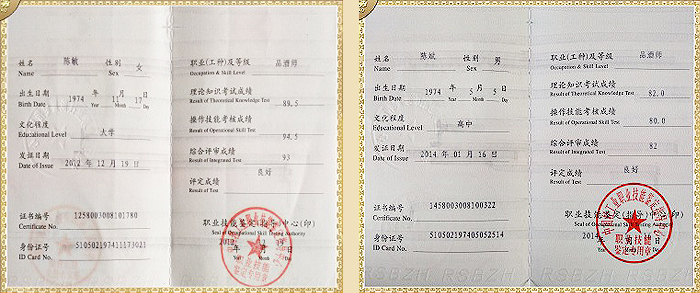 姓名 陈敏 性别 女
Name Sex
出生日期 1974 11 17
Birth Date Year Month Day
文化程度 大学
Educational Level
发证日期 2012 年 12 月 19 日
Date of Issue
证书编号 1258003008101780
Certificate No.
身份证号 510502197411173021
ID Card No.
职业(工种)及等级 品酒师
Occupation & Skill Level
理论知识考试成绩 89.5
Result of Theoretical Knowledge Test
操作技能考核成绩 94.5
Result of Operational Skill Test
综合评审成绩 93
Result of Integrated Test
评定成绩 良好
职业技能鉴定(指导)中心(印)
Seal of Occupational Skill Testing Authority
姓名 陈斌 性别 男
Name Sex
出生日期 1974 5 5
Birth Date Year Month Day
文化程度 高中
Educational Level
发证日期 2014 年 01 月 16 日
Date of Issue
证书编号 1458003008100322
Certificate No.
身份证号 510502197405052514
ID Card No.
职业(工种)及等级 品酒师
Occupation & Skill Level
理论知识考试成绩 82.0
Result of Theoretical Knowledge Test
操作技能考核成绩 80.0
Result of Operational Skill Test
综合评审成绩 82
Result of Integrated Test
评定成绩 良好
职业技能鉴定(指导)中心(印)
Seal of Occupational Skill Testing Authority
2014 年 日
职业技能
鉴定专用章
RSBZH RSBZH